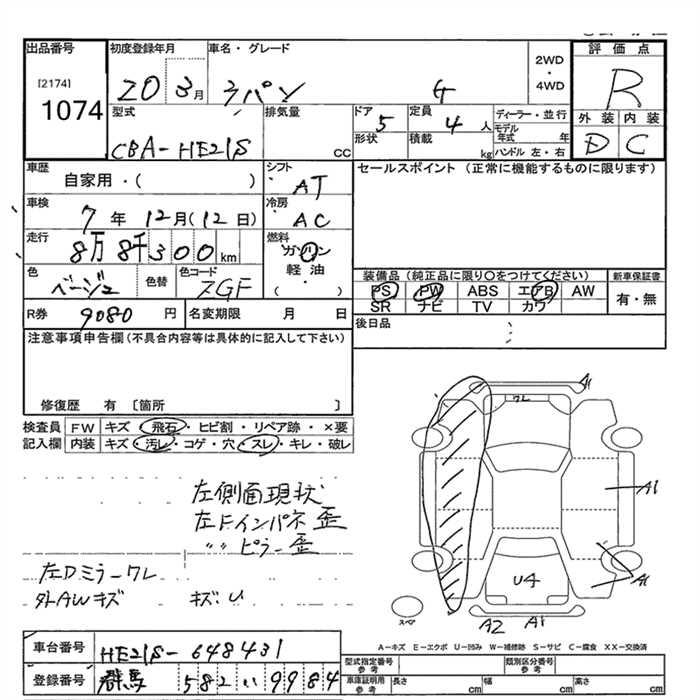 出品番号 初度登録年月 車名・グレード 2WD・4WD 評価点
[2174] 1074
20 3月 ラパン G R
型式 排気量 ドア 5 定員 4人 ディーラー・並行 外装 内装
CBA-HE21S CC 形状 積載 kg モデル年式 年 ハンドル 左・右 D C
車歴 自家用・( ) シフト AT セールスポイント (正常に機能するものに限ります)
車検 7年 12月(12日) 冷房 AC
走行 8万8千300km 燃料 ガソリン 軽油 ・( )
色 ベージュ 色替 色コード ZGF
装備品 (純正品に限り〇をつけてください) 新車保証書
PS PW ABS エアB AW 有・無
SR ナビ TV カワ
R券 9080円 名変期限 月 日 後日品
注意事項申告欄(不具合内容等は具体的に記入して下さい)
修復歴 有 〔箇所 〕
検査員記入欄 FW キズ・飛石・ヒビ割・リペア跡・×要
内装 キズ・汚レ・コゲ・穴・スレ・キレ・破レ
左側面現状
左Fインパネ歪
〃 ピラー歪
左Dミラーワレ
外AWキズ キズ:U
A1
ワレ
A1
A1
U4
スペア
A2 A1
A-キズ E-エクボ U-凹み W-補修跡 S-サビ C-腐食 XX-交換済
車台番号 HE21S-648431
登録番号 群馬 582 い 9984
型式指定番号 参考 類別区分番号 参考
車庫証明用 参考 長さ cm 幅 cm 高さ cm